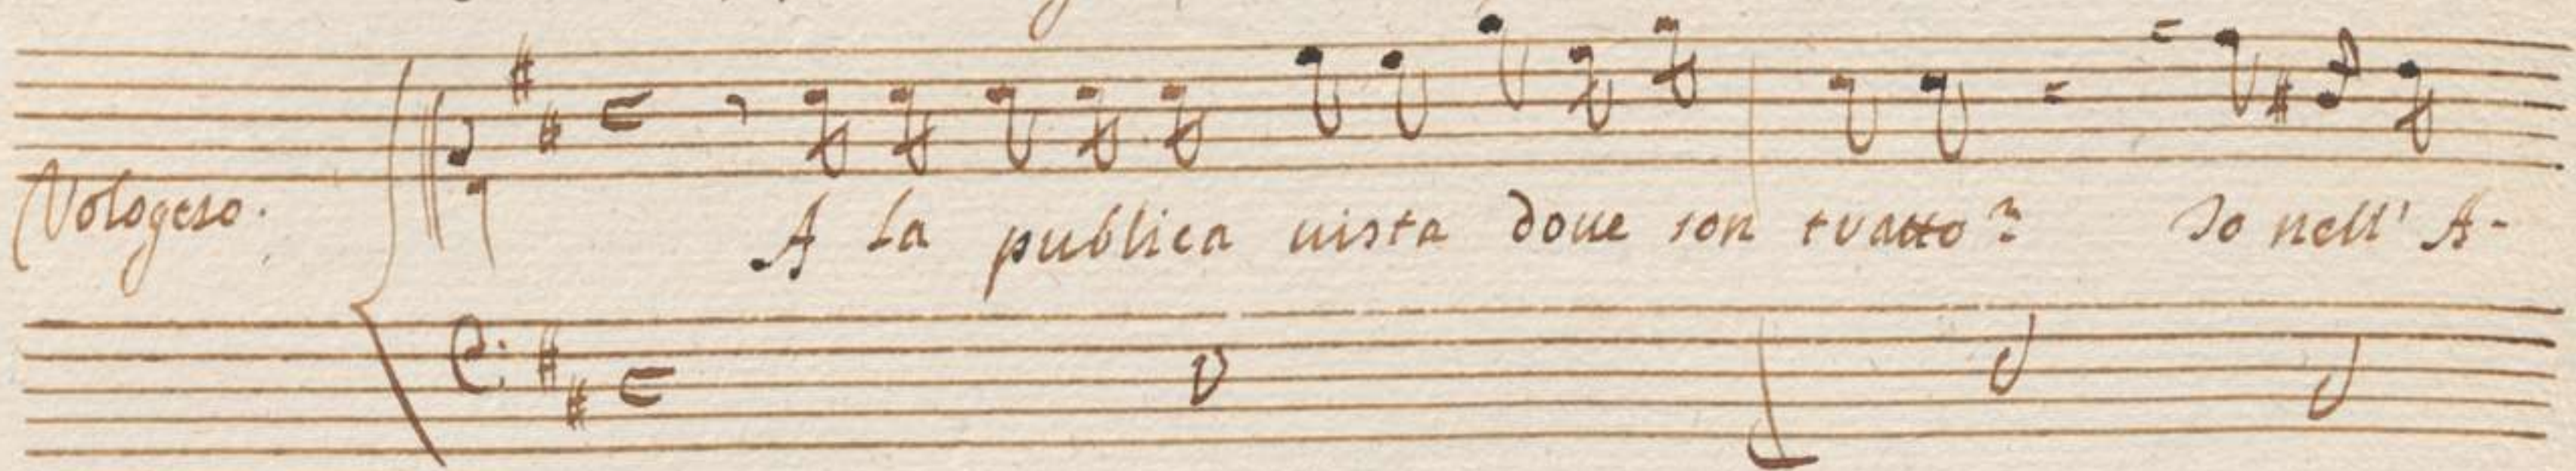 Vologeso. A la publica uista doue son tratto? Io nell' A-